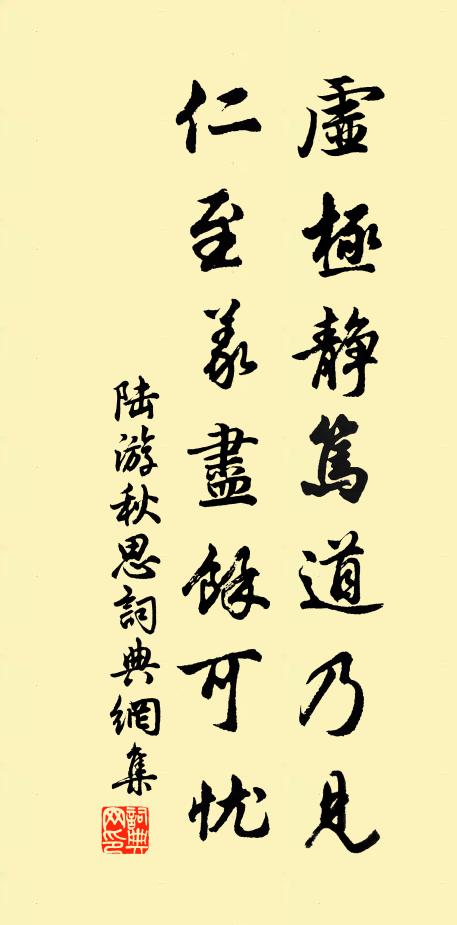 虛極靜篤道乃見
仁至義盡餘可憂
陸游秋思詞典網集
詞典网印